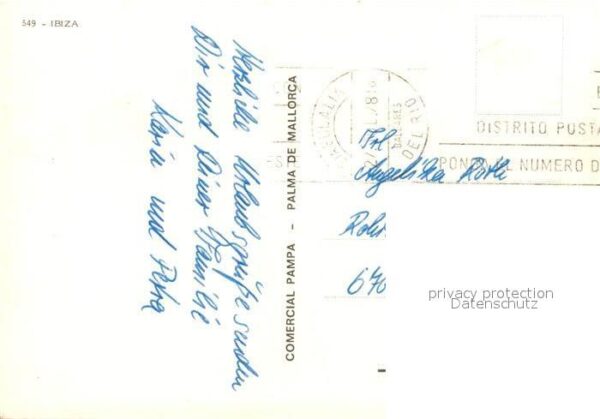 549 - IBIZA
Herzliche Urlaubsgrüße senden
Dir und Deiner Familie
Karin und Petra
COMERCIAL PAMPA - PALMA DE MALLORCA
BALEARES
DEL RIO
DISTRITO POSTA
PONGA EL NUMERO D
Frl
Angelika Roth
670
privacy protection
Datenschutz